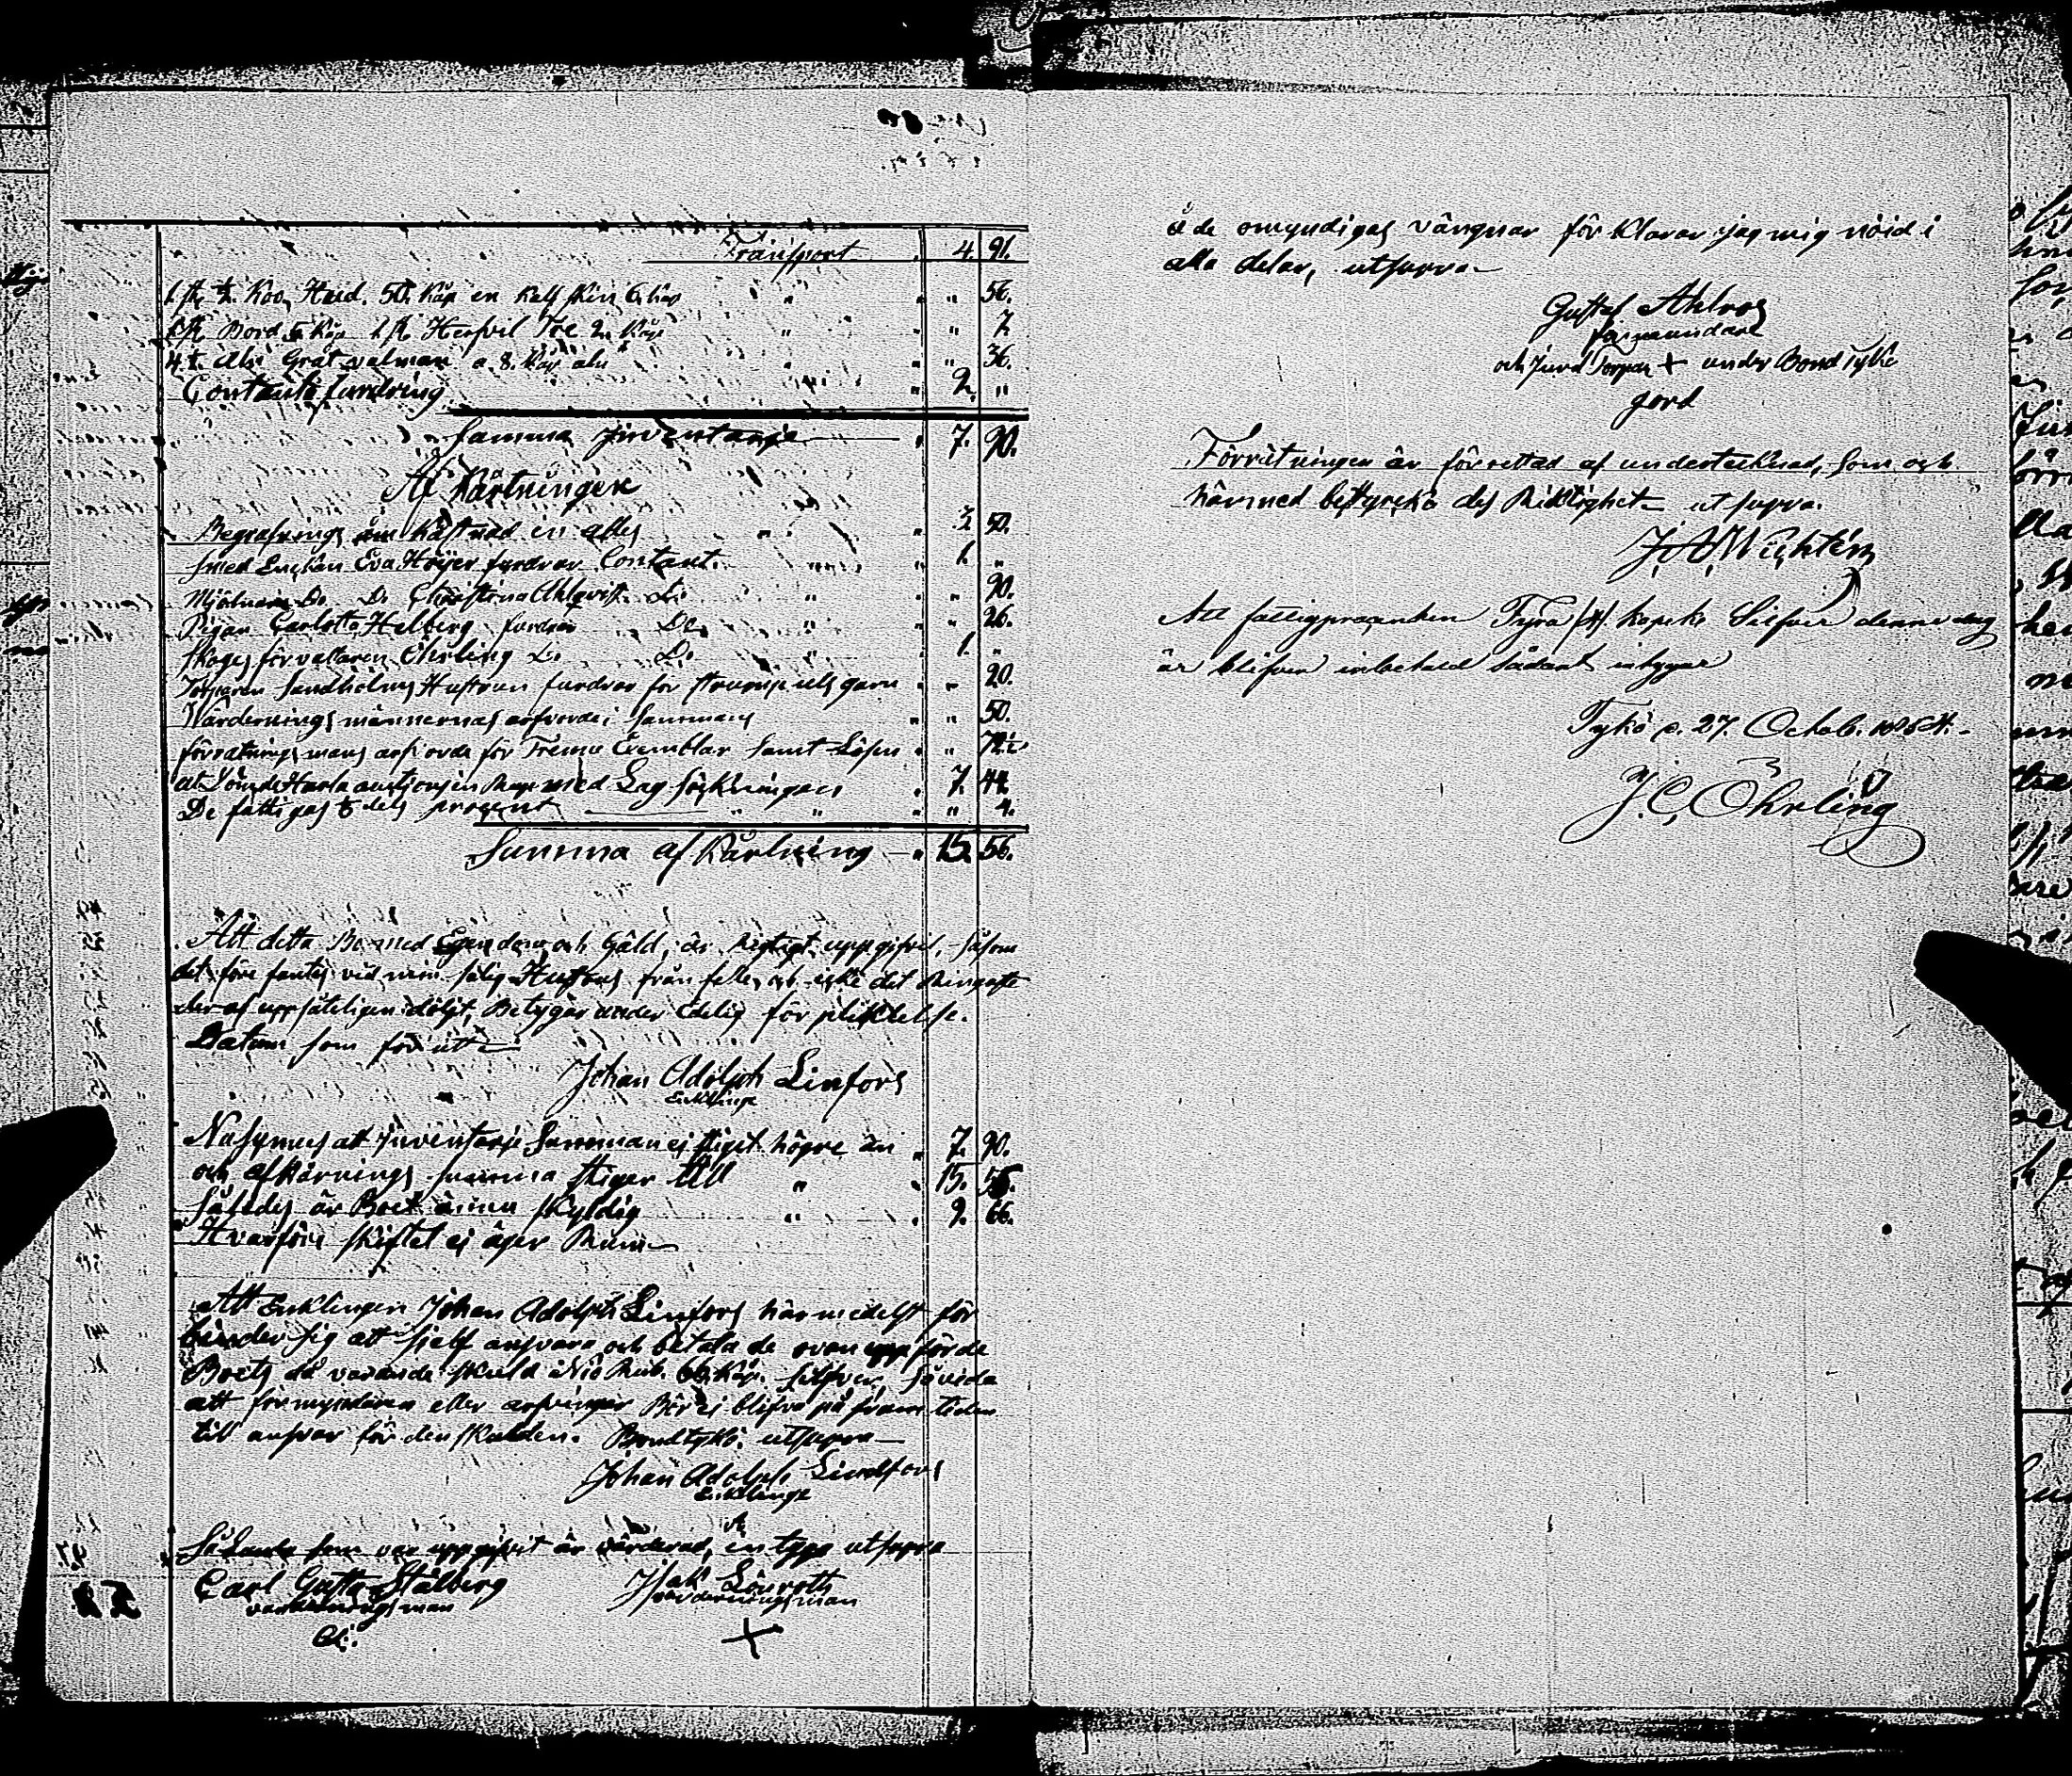 Transport " 4. 91.
1 st. Koo Hud. 50. Kop en Kalf skin 6. kop " " 56.
1 st Bord 5 Kop 1 st Herfvil Tre 2 Kop " " 7
4½ aln Gråt valman a 8. Kop aln " " 36.
Contante fordring " 2. "
Summa Inventarje 7. 90.
Af Kårtningen
Begrafnings om kåstnad in alles 3. 50.
Smed Enckan Eva Höijer fordrar Contant. 1. "
Do Do Christina Ahlqvist Do " 90.
Pigan Carlotta Helberg fordrar Do " 26.
Skogs förvaltaren Öhrling Do Do 1. "
Torparen Sandholms Hustrun fordrar för strump ulls garn " 20.
Wärderings männernas arfvorde i Sammans " 50.
förrätnings mans arfvorde för Trenne Exemblar samt Lösen " 72½
med Lag sökningen 7. 44
De fattigas dels procent " " 4.
Summa af Kårtning 15. 56.
Att detta Bo med Egendom och Gäld, är Rigtigt uppgifvit, såsom
det före fants vid min salig Hustrus från felle, och icke det Ringaste
der af uppsåteligen döljt, Betygar under Edelig för pliktelse.
Datum som förut
Johan Adolph Linfors
Enklinge
att Inventarje Summan ej stiget högre än " 7. 90.
och afkårnings summa stiger till " 15. 56.
Således är Boet ännu skyldig " 9. 66.
Hvarföre skiftet ej äger Rum
Att Enklingen Johan Adolph Linfors härmedelst för
binder sig att sjelf ansvara och betala de ovan uppförde
Boets då varande skuld Nio Rub. 66. Kop. silfver, såvida
att förmyndaren eller arfvingar Bör ej blifva på framtiden
till ansvar för den skulden. Bondtykö. utsupra
Johan Adolph Lindfors
Enklinge
Sålunda som var uppgifvit är värderad, in tyga utsupra
Carl Gustaf Stålberg Isak Lönroth
värderingsman värderningsman
+
å de omyndigas vängnar för klarar jag mig nöid i
alla delar, utsupra
Gustaf Ahlros
och Jurd Torpar + under Bond Tykö
gord
Förrätningen är förrettad af undertecknad, som och
härmed bettyrckes des Riktighet utsupra.
Att fattigprocenten Fyra /4/ kopek Silfver denne dag
är blifven inbetald sådant intygar
Tykö d. 27. Octob. 1854.
J. C. Öhrling